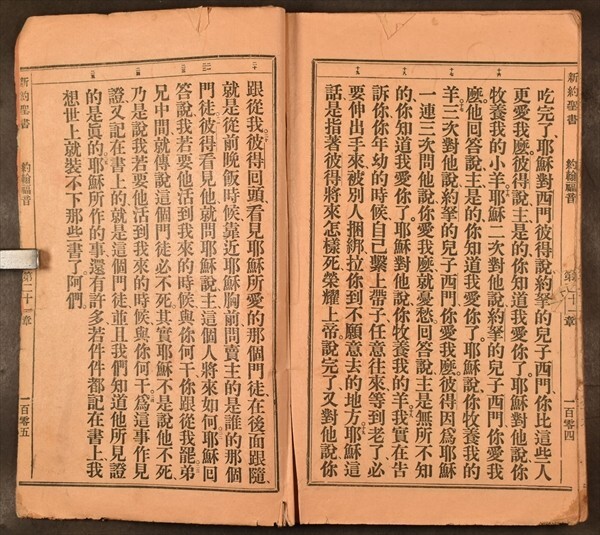 新約聖書 約翰福音 第二十一章 一百零四
吃完了、耶穌對西門彼得說、約拏的兒子西門、你比這些人
更愛我麼。彼得說、主是的、你知道我愛你了。耶穌對他說、你
牧養我的小羊。耶穌二次對他說、約拏的兒子西門、你愛我
麼。他回答說、主是的、你知道我愛你了。耶穌說、你牧養我的
羊。三次對他說、約拏的兒子西門、你愛我麼。彼得因爲耶穌
一連三次問他說、你愛我麼、就憂愁。回答說、主是無所不知
的、你知道我愛你了。耶穌對他說、你牧養我的羊。我實在告
訴你、你年幼的時候、自己繫上帶子、任意往來、等到老了、必
要伸出手來、被別人捆綁、拉你到不願意去的地方。耶穌這
話是指著彼得將來怎樣死、榮耀上帝。說完了、又對他說、你
跟從我。彼得回頭、看見耶穌所愛的那個門徒、在後面跟隨、
就是從前晚飯時候、靠近耶穌胸前、問賣主的是誰的那個
門徒。彼得看見他、就問耶穌說、主、這個人將來如何。耶穌回
答說、我若要他活到我來的時候、與你何干、你跟從我罷。弟
兄中間就傳說這個門徒必不死、其實耶穌不是說他不死、
乃是說我若要他活到我來的時候、與你何干。爲這事作見
證、又記在書上的、就是這個門徒、並且我們知道他所見證
的是眞的。耶穌所作的事、還有許多、若件件都記在書上、我
想世上就裝不下那些書了。阿們。
新約聖書 約翰福音 第二十一章 一百零五